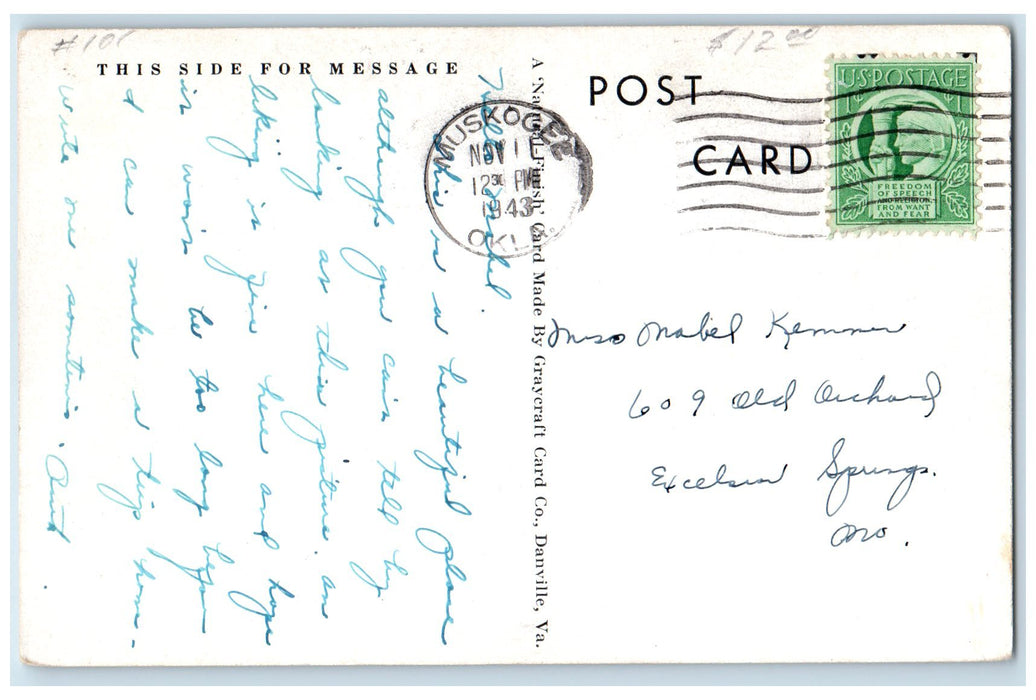 #101
$12.00
THIS SIDE FOR MESSAGE
POST
CARD
MUSKOGEE
NOV 11
12 30 PM
1943
OKLA.
U.S. POSTAGE
1¢ 1¢
FREEDOM
OF SPEECH
AND RELIGION,
FROM WANT
AND FEAR
A "Natural-Finish" Card Made By Graycraft Card Co., Danville, Va.
Miss Mabel Kemmer
609 Old Orchard
Excelsior Springs.
Mo.
Mabel.
This is a beautiful place
although you cain tell by
looking at this picture. am
liking is fine here and hope
it wont be too long before
I can make a trip home.
Write me sometime. Aunt